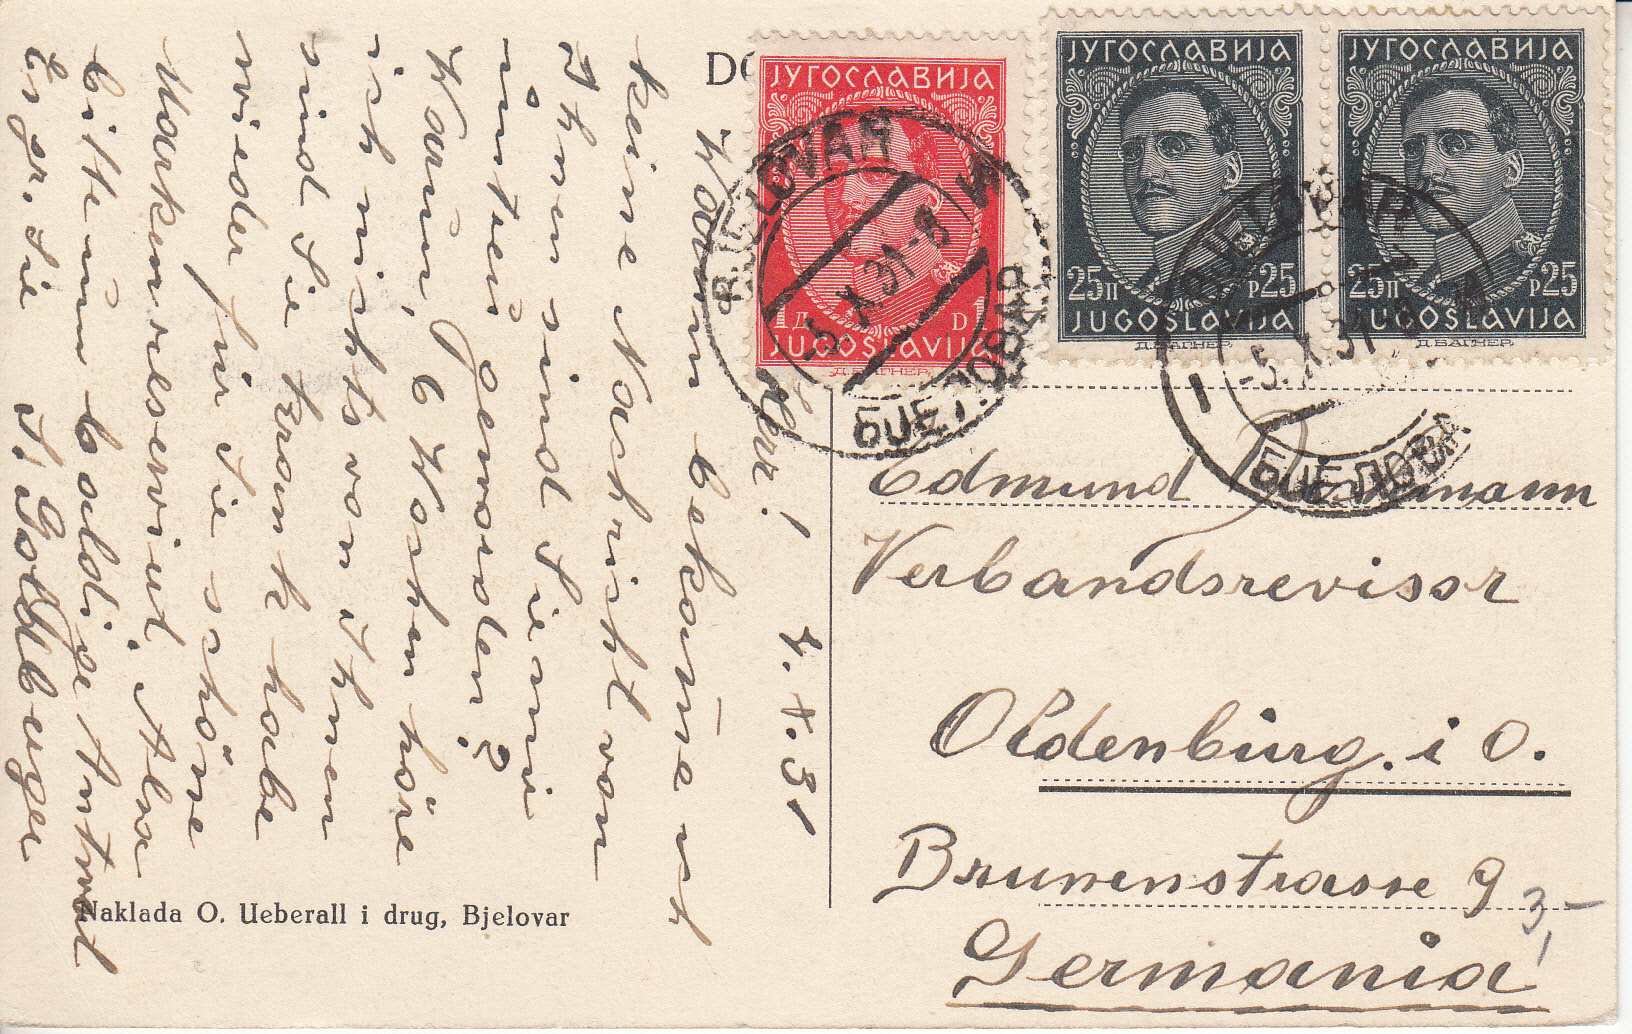 ЈУГОСЛАВИЈА
1Д D1
JUGOSLAVIJA
Д. ВАГНЕР.
ЈУГОСЛАВИЈА
25П Р25
JUGOSLAVIJA
Д. ВАГНЕР.
ЈУГОСЛАВИЈА
25П Р25
JUGOSLAVIJA
Д. ВАГНЕР.
BJELOVAR
-5.X.31-8
БЈЕЛОВАР
BJELOVAR
-5.X.31
БЈЕЛОВАР
4. X. 31
Warum bekom̄e ich
keine Nachricht von
Ihnen sind Sie mir
untreu geworden?
Warum, 6 Wochen höre
ich nichts von Ihnen
sind Sie krank habe
wieder für Sie schöne
Markenreserviert, Also
bitte um baldige Antwort
Es gr. Sie
S. Goldberger
Edmund
Verbandsrevisor
Oldenburg. i O.
Brunenstrasse 9
Germania
3,-
Naklada O. Ueberall i drug, Bjelovar